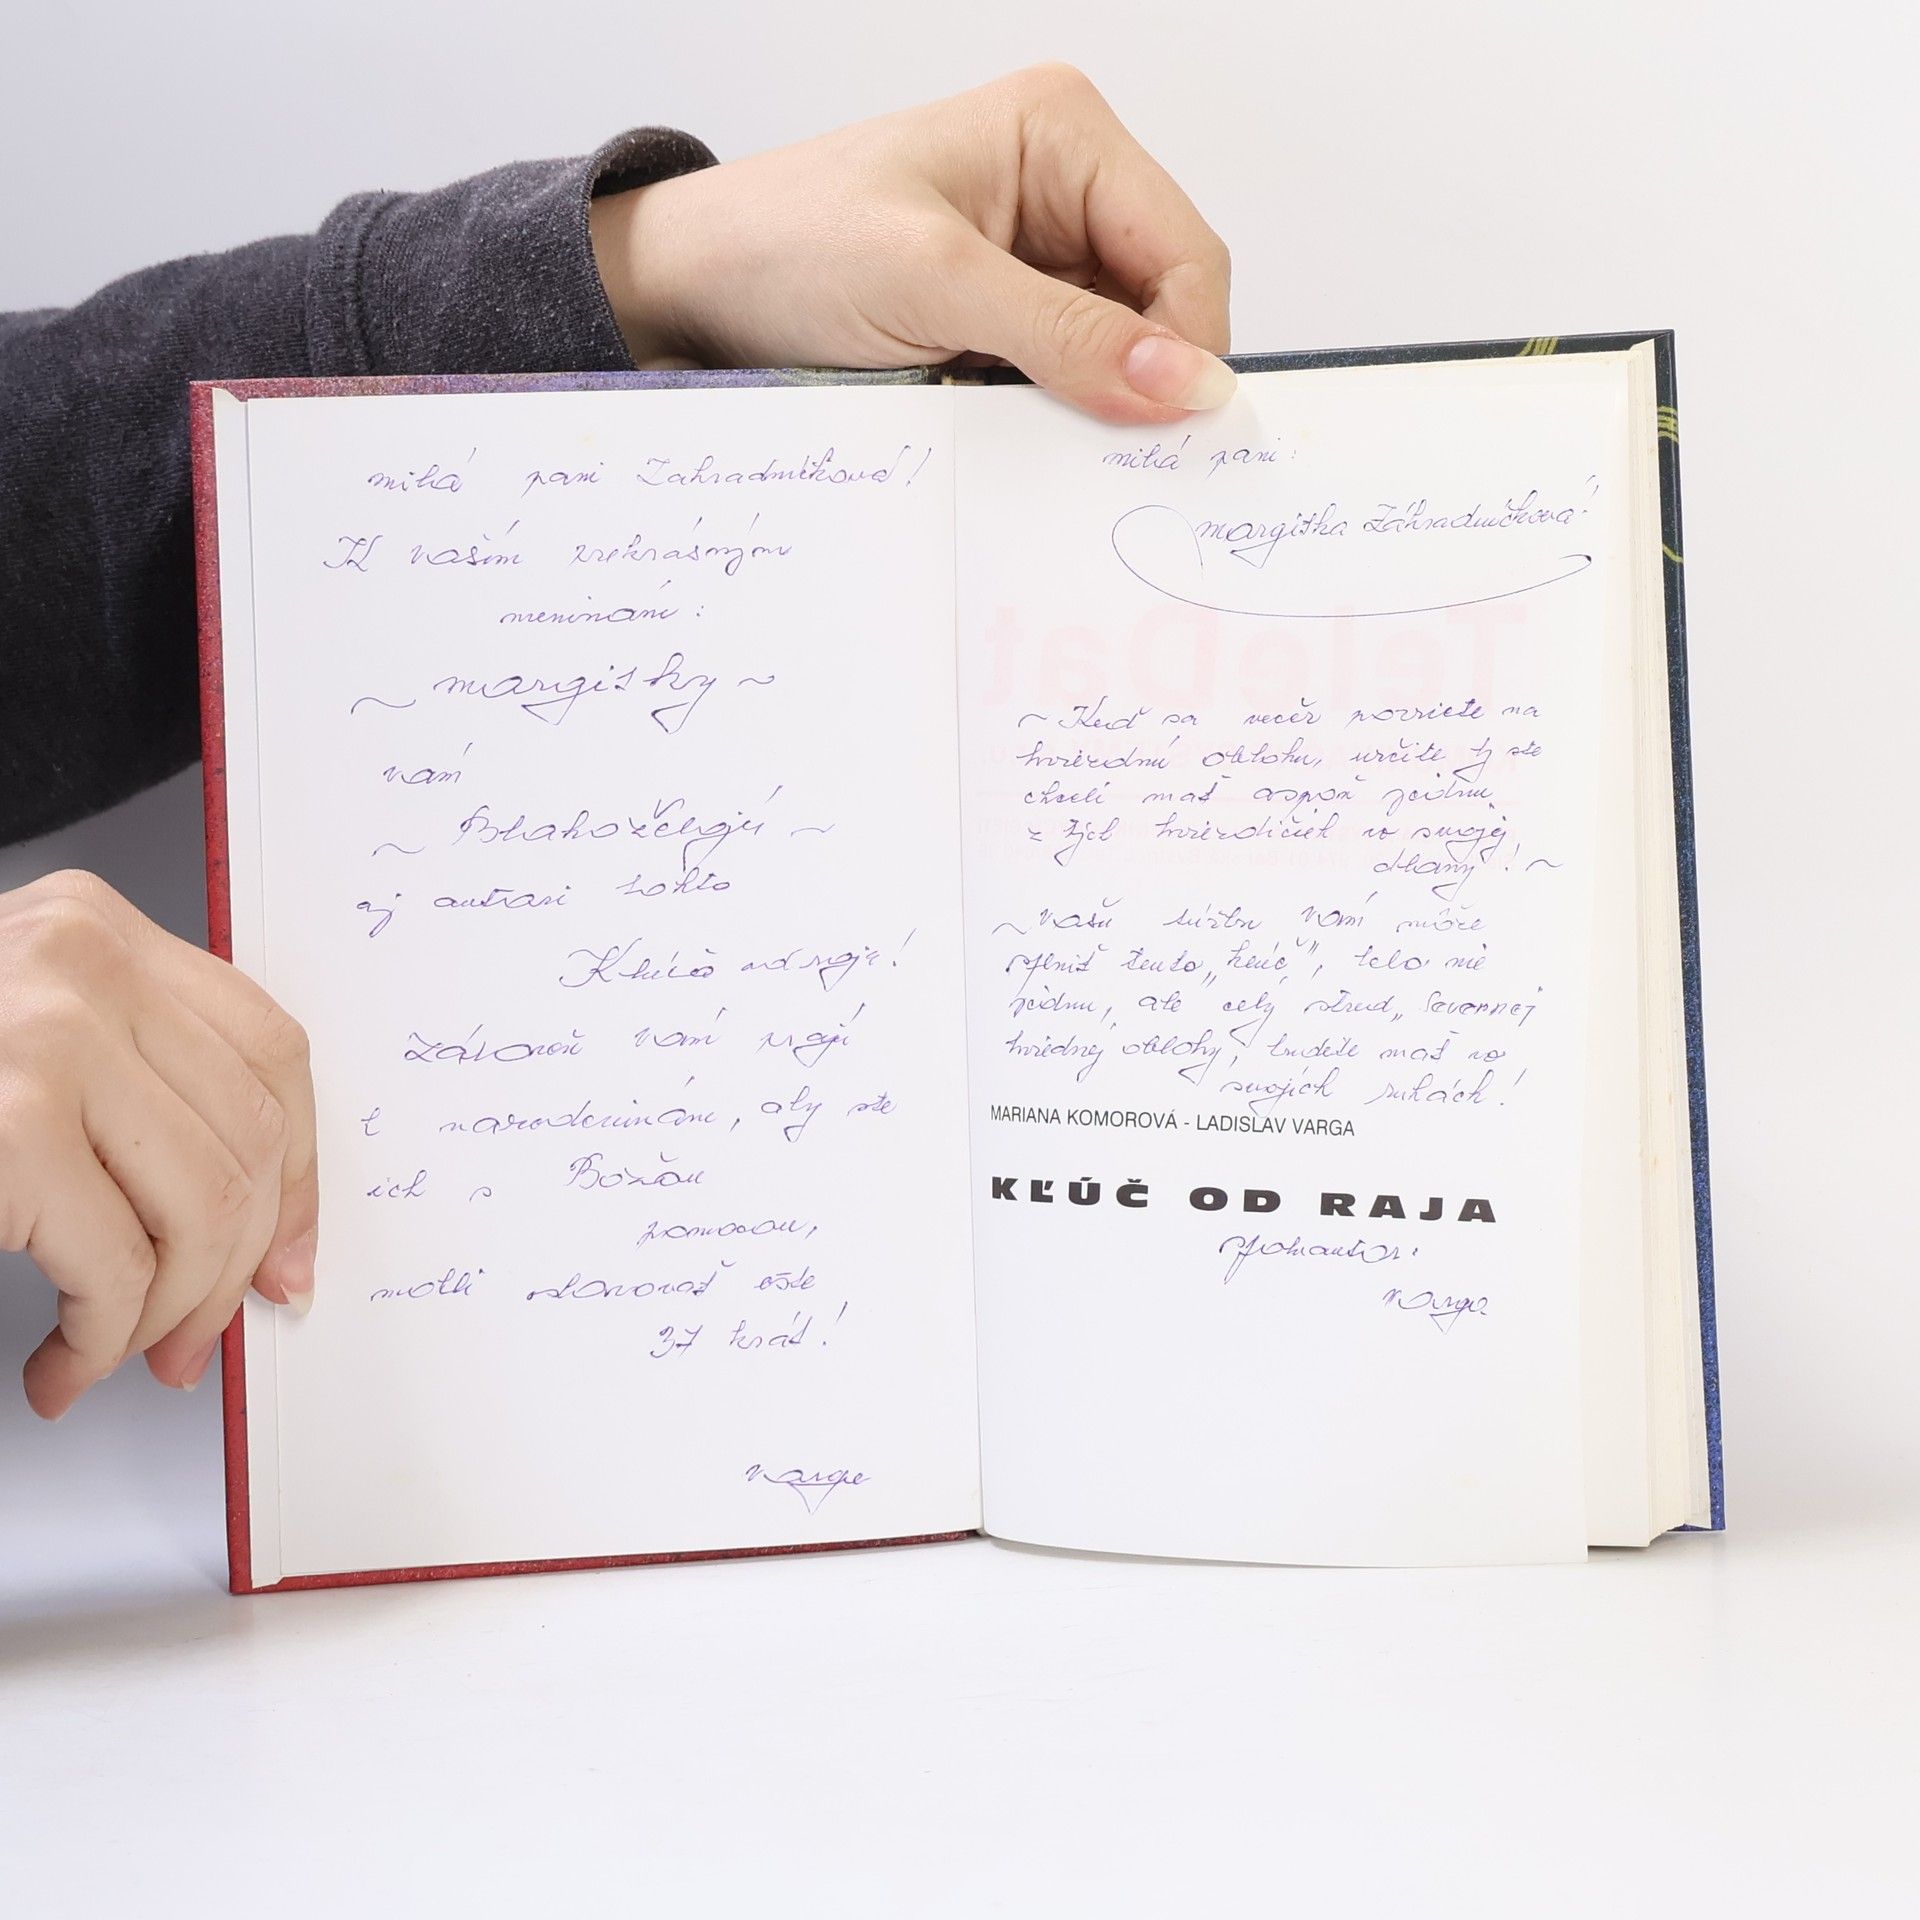 milá pani Zahradníková!
K vašim prekrásnym
meninám:
~ margitky ~
vám
~ Blahoželajú ~
aj autori tohto
Kľúča od raja!
Zároveň vám prajú
k narodeninám, aby ste
ich s Božou
pomocou,
mohli oslavovať ešte
37 krát!
Varga
milá pani:
margitka Záhradníčková!
~ Keď sa večer pozriete na
hviezdnú oblohu, určite by ste
chceli mať aspoň jednu
z tých hviezdičiek vo svojej
dlany! ~
~ vašu túžbu vám môže
splniť tento „kľúč", lebo nie
jednu, ale celý stred „Severnej
hviednej oblohy, budete mať vo
svojích rukách!
MARIANA KOMOROVÁ - LADISLAV VARGA
KĽÚČ OD RAJA
spoluautor:
Varga
TeleDat